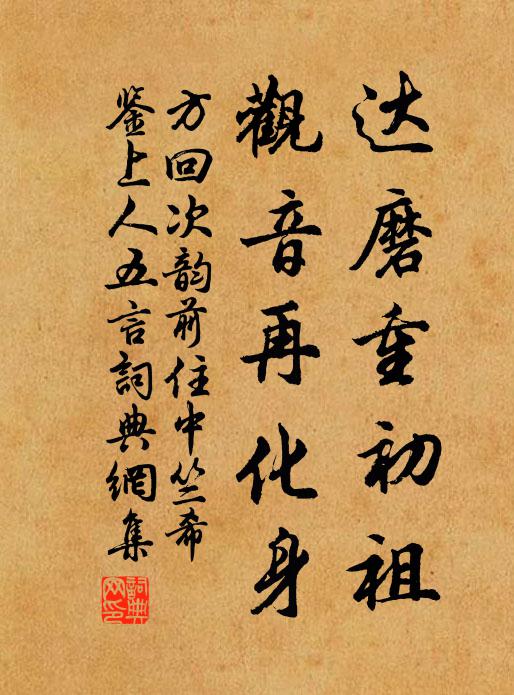 达磨重初祖
觀音再化身
方回次韵前住中竺希
鉴上人五言詞典網集
詞典
网印